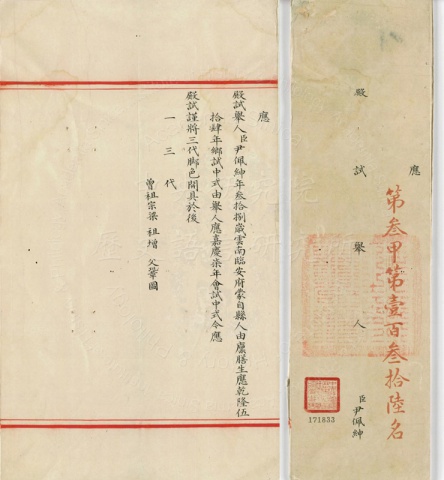 應
第叁甲第壹百叁拾陸名
殿試舉人
臣尹佩紳
171833
應
殿試舉人臣尹佩紳年叁拾捌歲雲南臨安府蒙自縣人由廩膳生應乾隆伍
拾肆年鄉試中式由舉人應嘉慶柒年會試中式今應
殿試謹將三代腳色開具於後
一三代
曾祖宗梁 祖增 父肇國